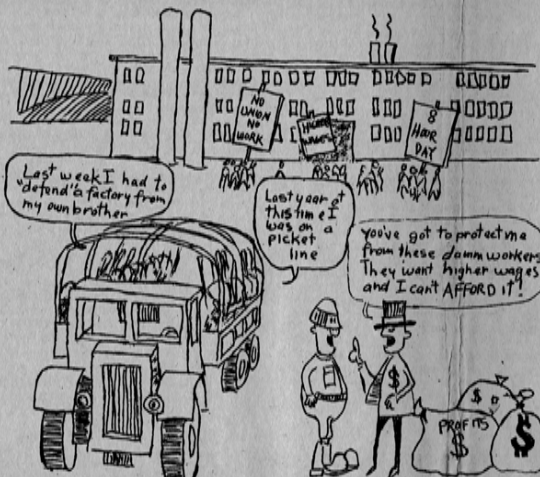 NO
UNION
NO
WORK
HIGHER
WAGES
8
HOUR
DAY
Last week I had to
"defend" a factory from
my own brother
Last year at
this time I
was on a
picket
line
you've got to protect me
from these damm workers
They want higher wages
and I can't AFFORD it!
$
$
PROFITS
$
$